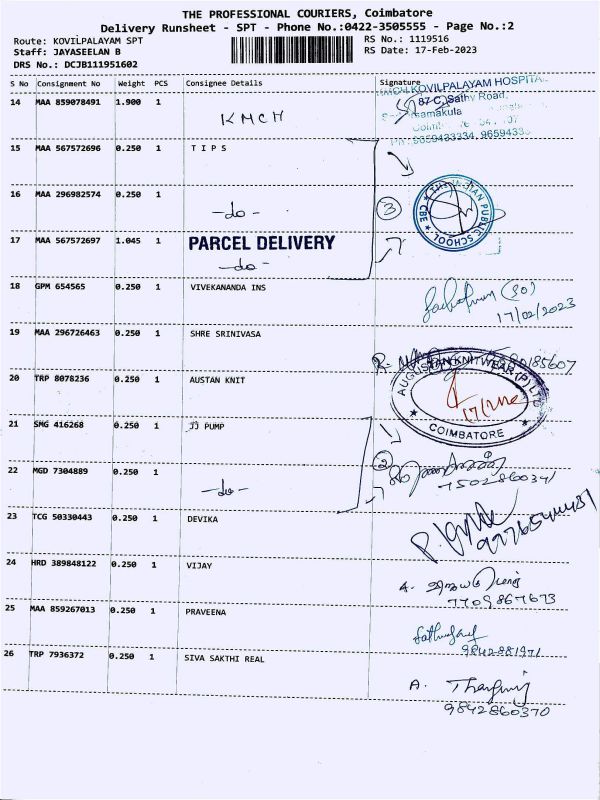 THE PROFESSIONAL COURIERS, Coimbatore
Delivery Runsheet - SPT - Phone No.:0422-3505555 - Page No.:2
Route: KOVILPALAYAM SPT
RS No.: 1119516
Staff: JAYASEELAN B
RS Date: 17-Feb-2023
DRS No.: DCJB111951602
S No Consignment No Weight PCS Consignee Details Signature
14 MAA 859078491 1.900 1 KMCH
KOVILPALAYAM HOSPITAL
87-C, Sathy Road,
15 MAA 567572696 0.250 1 T I P S
16 MAA 296982574 0.250 1
-do-
3
PUBLIC SCHOOL
CBE
17 MAA 567572697 1.045 1 PARCEL DELIVERY
-do-
18 GPM 654565 0.250 1 VIVEKANANDA INS
17/02/2023
19 MAA 296726463 0.250 1 SHRE SRINIVASA
20 TRP 8078236 0.250 1 AUSTAN KNIT
AUGUSTAN KNITWEAR (P) LTD
COIMBATORE
21 SMG 416268 0.250 1 JJ PUMP
2
7502860341
22 MGD 7304889 0.250 1
-do-
23 TCG 50330443 0.250 1 DEVIKA
24 HRD 389848122 0.250 1 VIJAY
7709867673
25 MAA 859267013 0.250 1 PRAVEENA
9842881971
26 TRP 7936372 0.250 1 SIVA SAKTHI REAL
9842860370